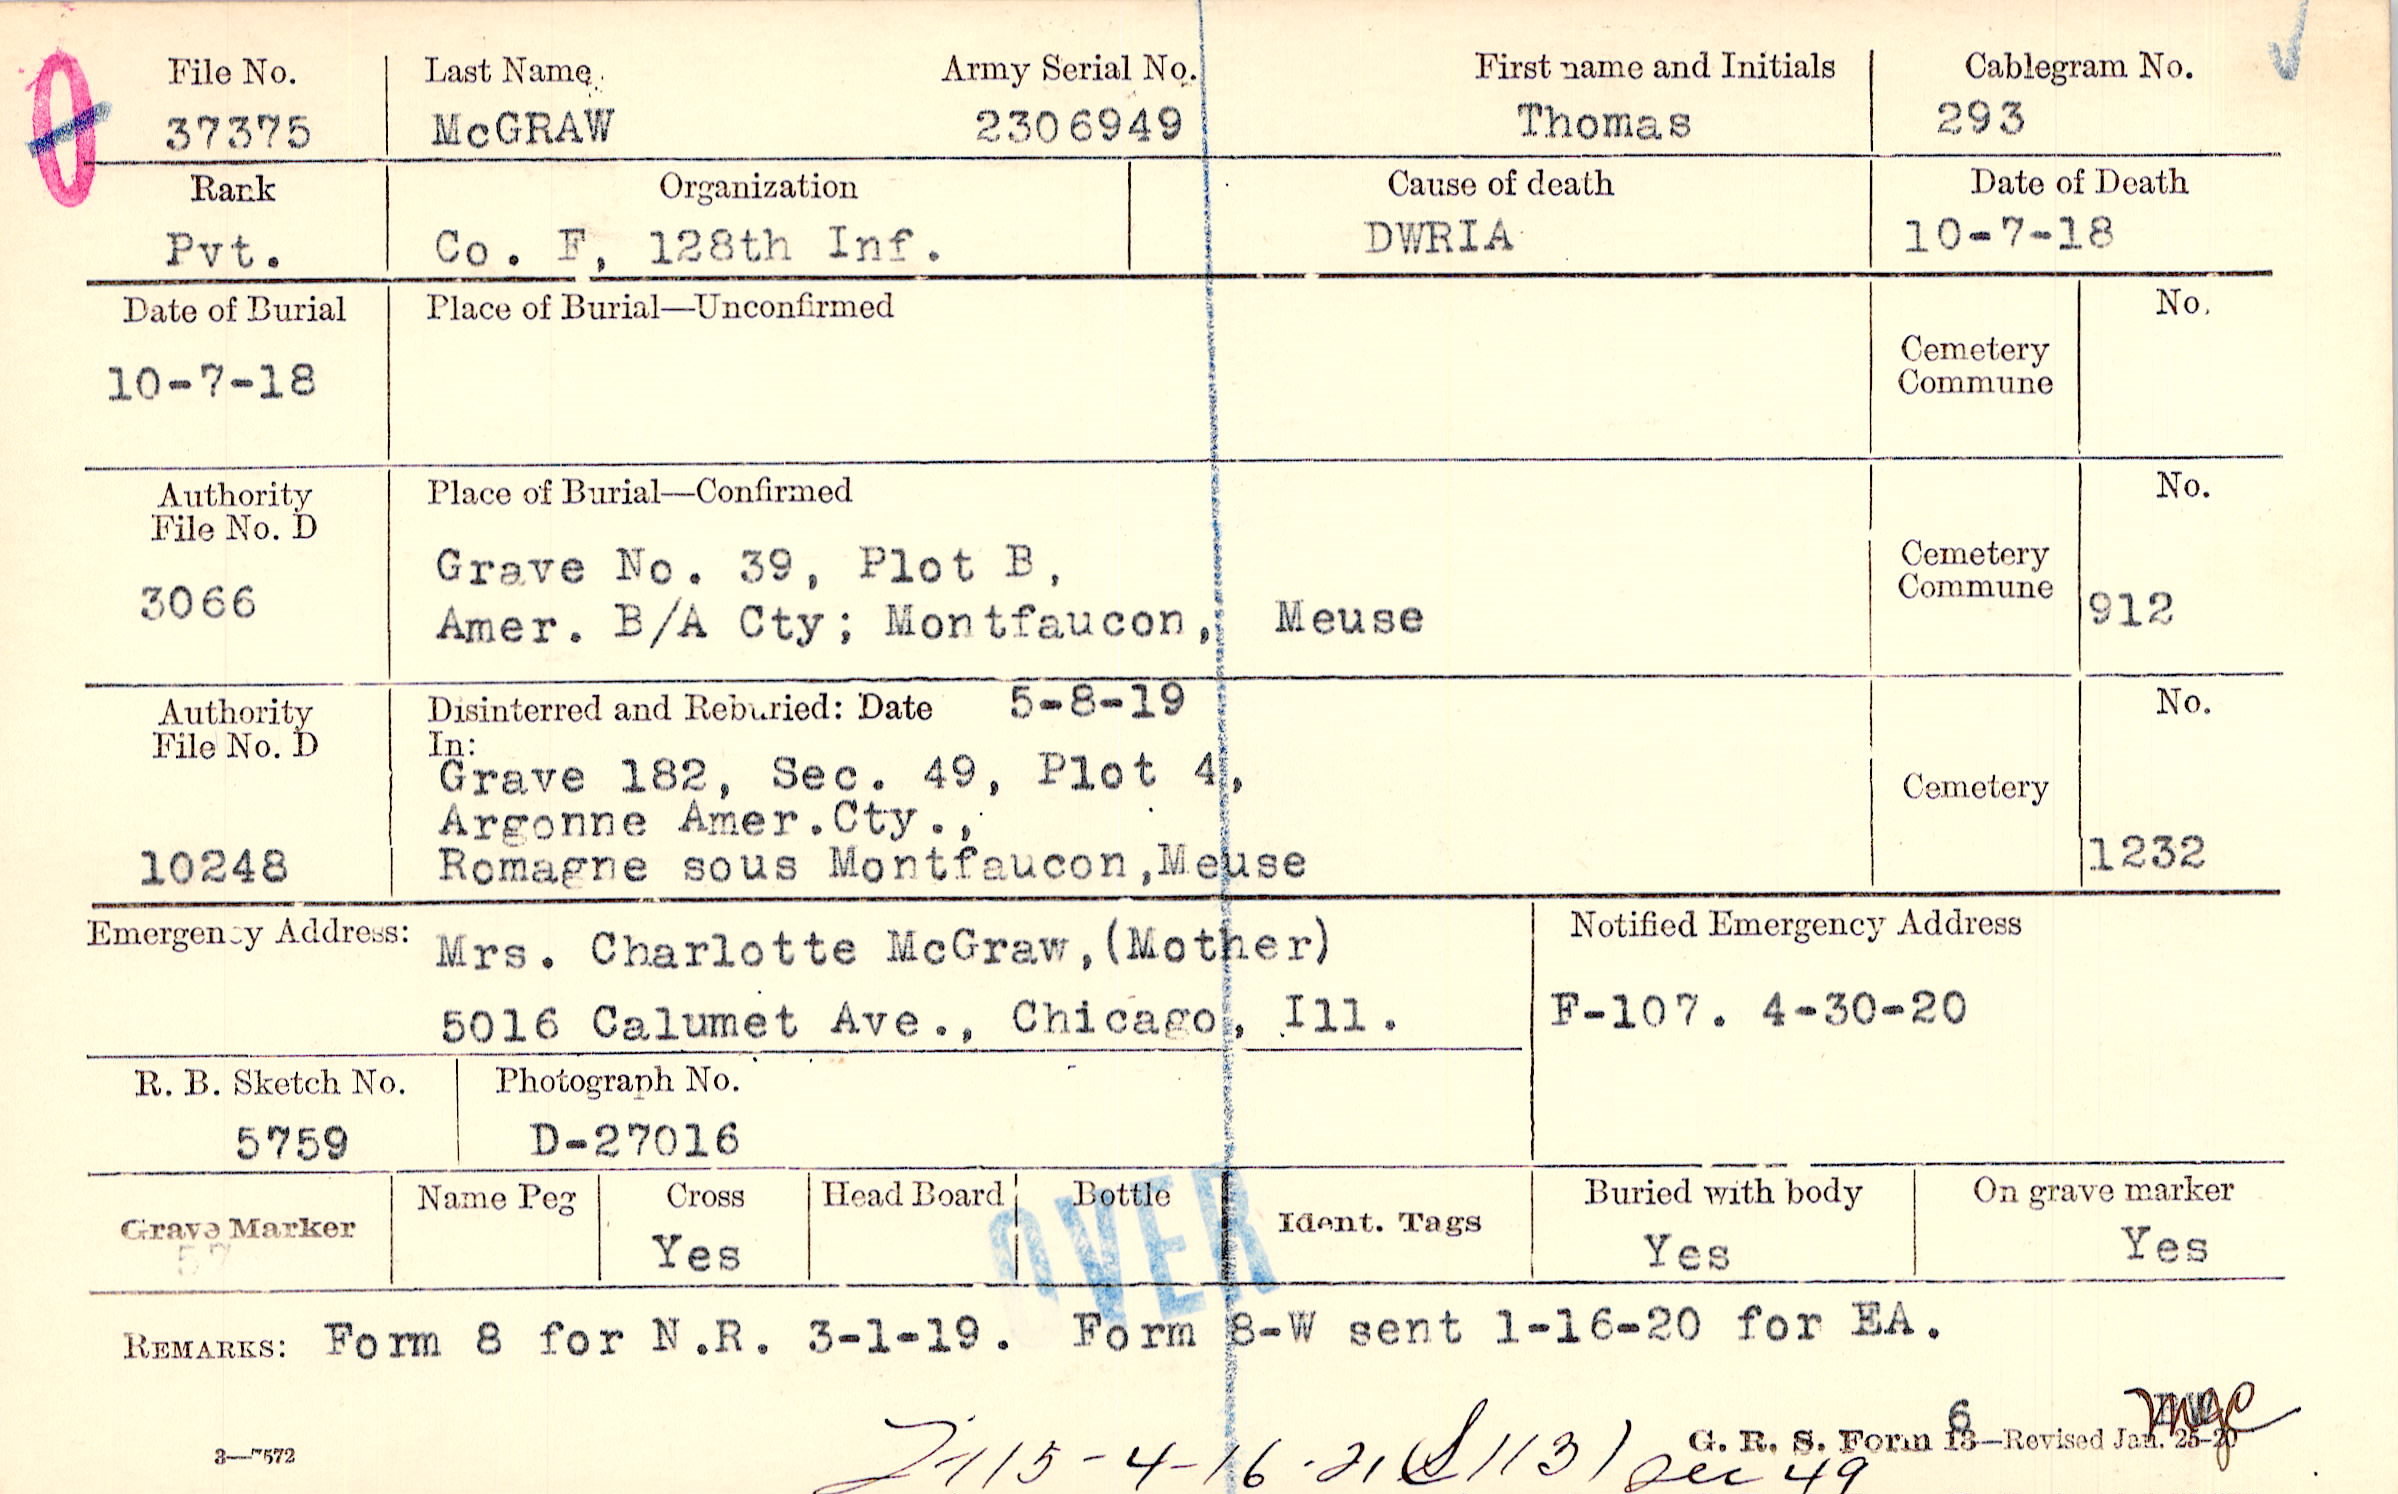 File No. Last Name Army Serial No. First name and Initials Cablegram No.
37375 McGRAW 2306949 Thomas 293
Rank Organization Cause of death Date of Death
Pvt. Co. F, 128th Inf. DWRIA 10-7-18
Date of Burial Place of Burial—Unconfirmed No.
10-7-18
Cemetery
Commune
Authority
File No. D
3066
Place of Burial—Confirmed No.
Grave No. 39, Plot B,
Amer. B/A Cty; Montfaucon, Meuse
Cemetery
Commune
912
Authority
File No. D
10248
Disinterred and Reburied: Date 5-8-19 No.
In:
Grave 182, Sec. 49, Plot 4,
Argonne Amer.Cty.,
Romagne sous Montfaucon,Meuse
Cemetery
1232
Emergency Address: Mrs. Charlotte McGraw,(Mother)
5016 Calumet Ave., Chicago, Ill.
Notified Emergency Address
F-107. 4-30-20
R. B. Sketch No. Photograph No.
5759 D-27016
Grave Marker Name Peg Cross Head Board Bottle Ident. Tags Buried with body On grave marker
Yes Yes Yes
OVER
REMARKS: Form 8 for N.R. 3-1-19. Form 8-W sent 1-16-20 for EA.
3—7572
G. R. S. Form 13—Revised Jan. 25-20
6